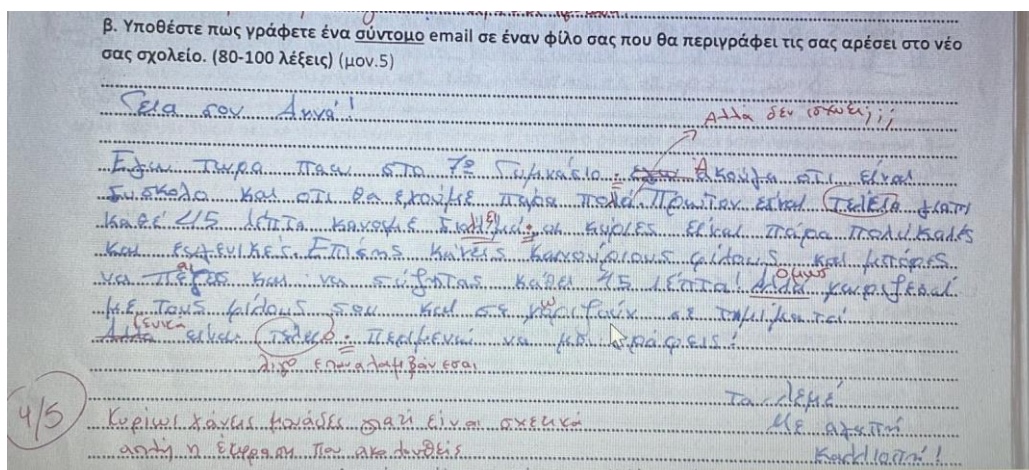 β. Υποθέστε πως γράφετε ένα σύντομο email σε έναν φίλο σας που θα περιγράφει τις σας αρέσει στο νέο
σας σχολείο. (80-100 λέξεις) (μον.5)
Γεια σου Αννά!
Αλλά δεν ισχύει;;;
Εγω τωρα παω στο 7º Γυμνάσιο. Ακούγα οτι είναι
δυσκολο και οτι θα εχούμε πάρα πολά. Πρωτον είναι τελεία γιατι
καθέ 45 λέπτα κανουμε διαλλειμά. οι κυρίες είναι πάρα πολύ καλές
και ευγενικές. Επισης κάνεις καινούριους φίλους και μπόρες
να παίξεις και να συζητάς καθε 45 λέπτα! Αλλά όμως χωριζεσαι
με τους φίλους σου και σε χωρίζουν σε τμήματα
Αλλα γενικά είναι τέλεο. Περιμενώ να μου γράφεις!
λίγο επαναλαμβάνεσαι
Τα λέμε
4/5
Κυρίως χάνεις μονάδες γιατί είναι σχετικά
Με αγαπή
απλή η έκφραση που ακολουθείς
Καλλιοπή!